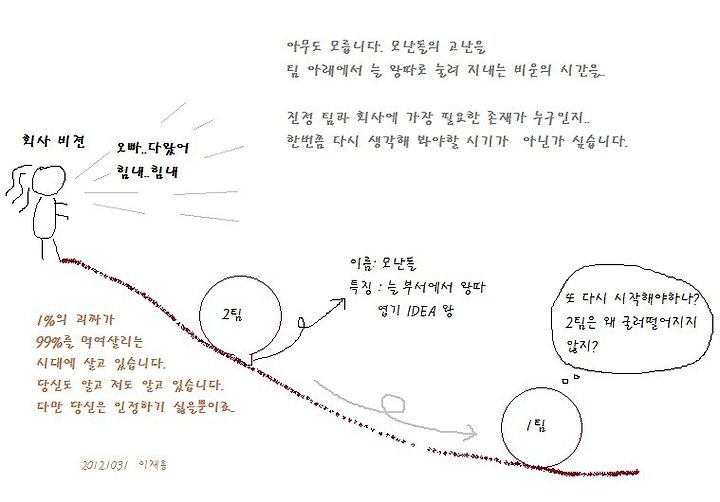 아무도 모릅니다. 모난돌의 고난을
팀 아래에서 늘 왕따로 눌려 지내는 비운의 시간을..
진정 팀과 회사에 가장 필요한 존재가 누구인지..
한번쯤 다시 생각해 봐야할 시기가 아닌가 싶습니다.
회사 비젼
오빠..다왔어
힘내..힘내
2팀
이름: 모난돌
특징 : 늘 부서에서 왕따
엽기 IDEA 왕
또 다시 시작해야하나?
2팀은 왜 굴러떨어지지
않지?
1팀
1%의 괴짜가
99%를 먹여살리는
시대에 살고 있습니다.
당신도 알고 저도 알고 있습니다.
다만 당신은 인정하기 싫을뿐이죠.
20121031 이재용